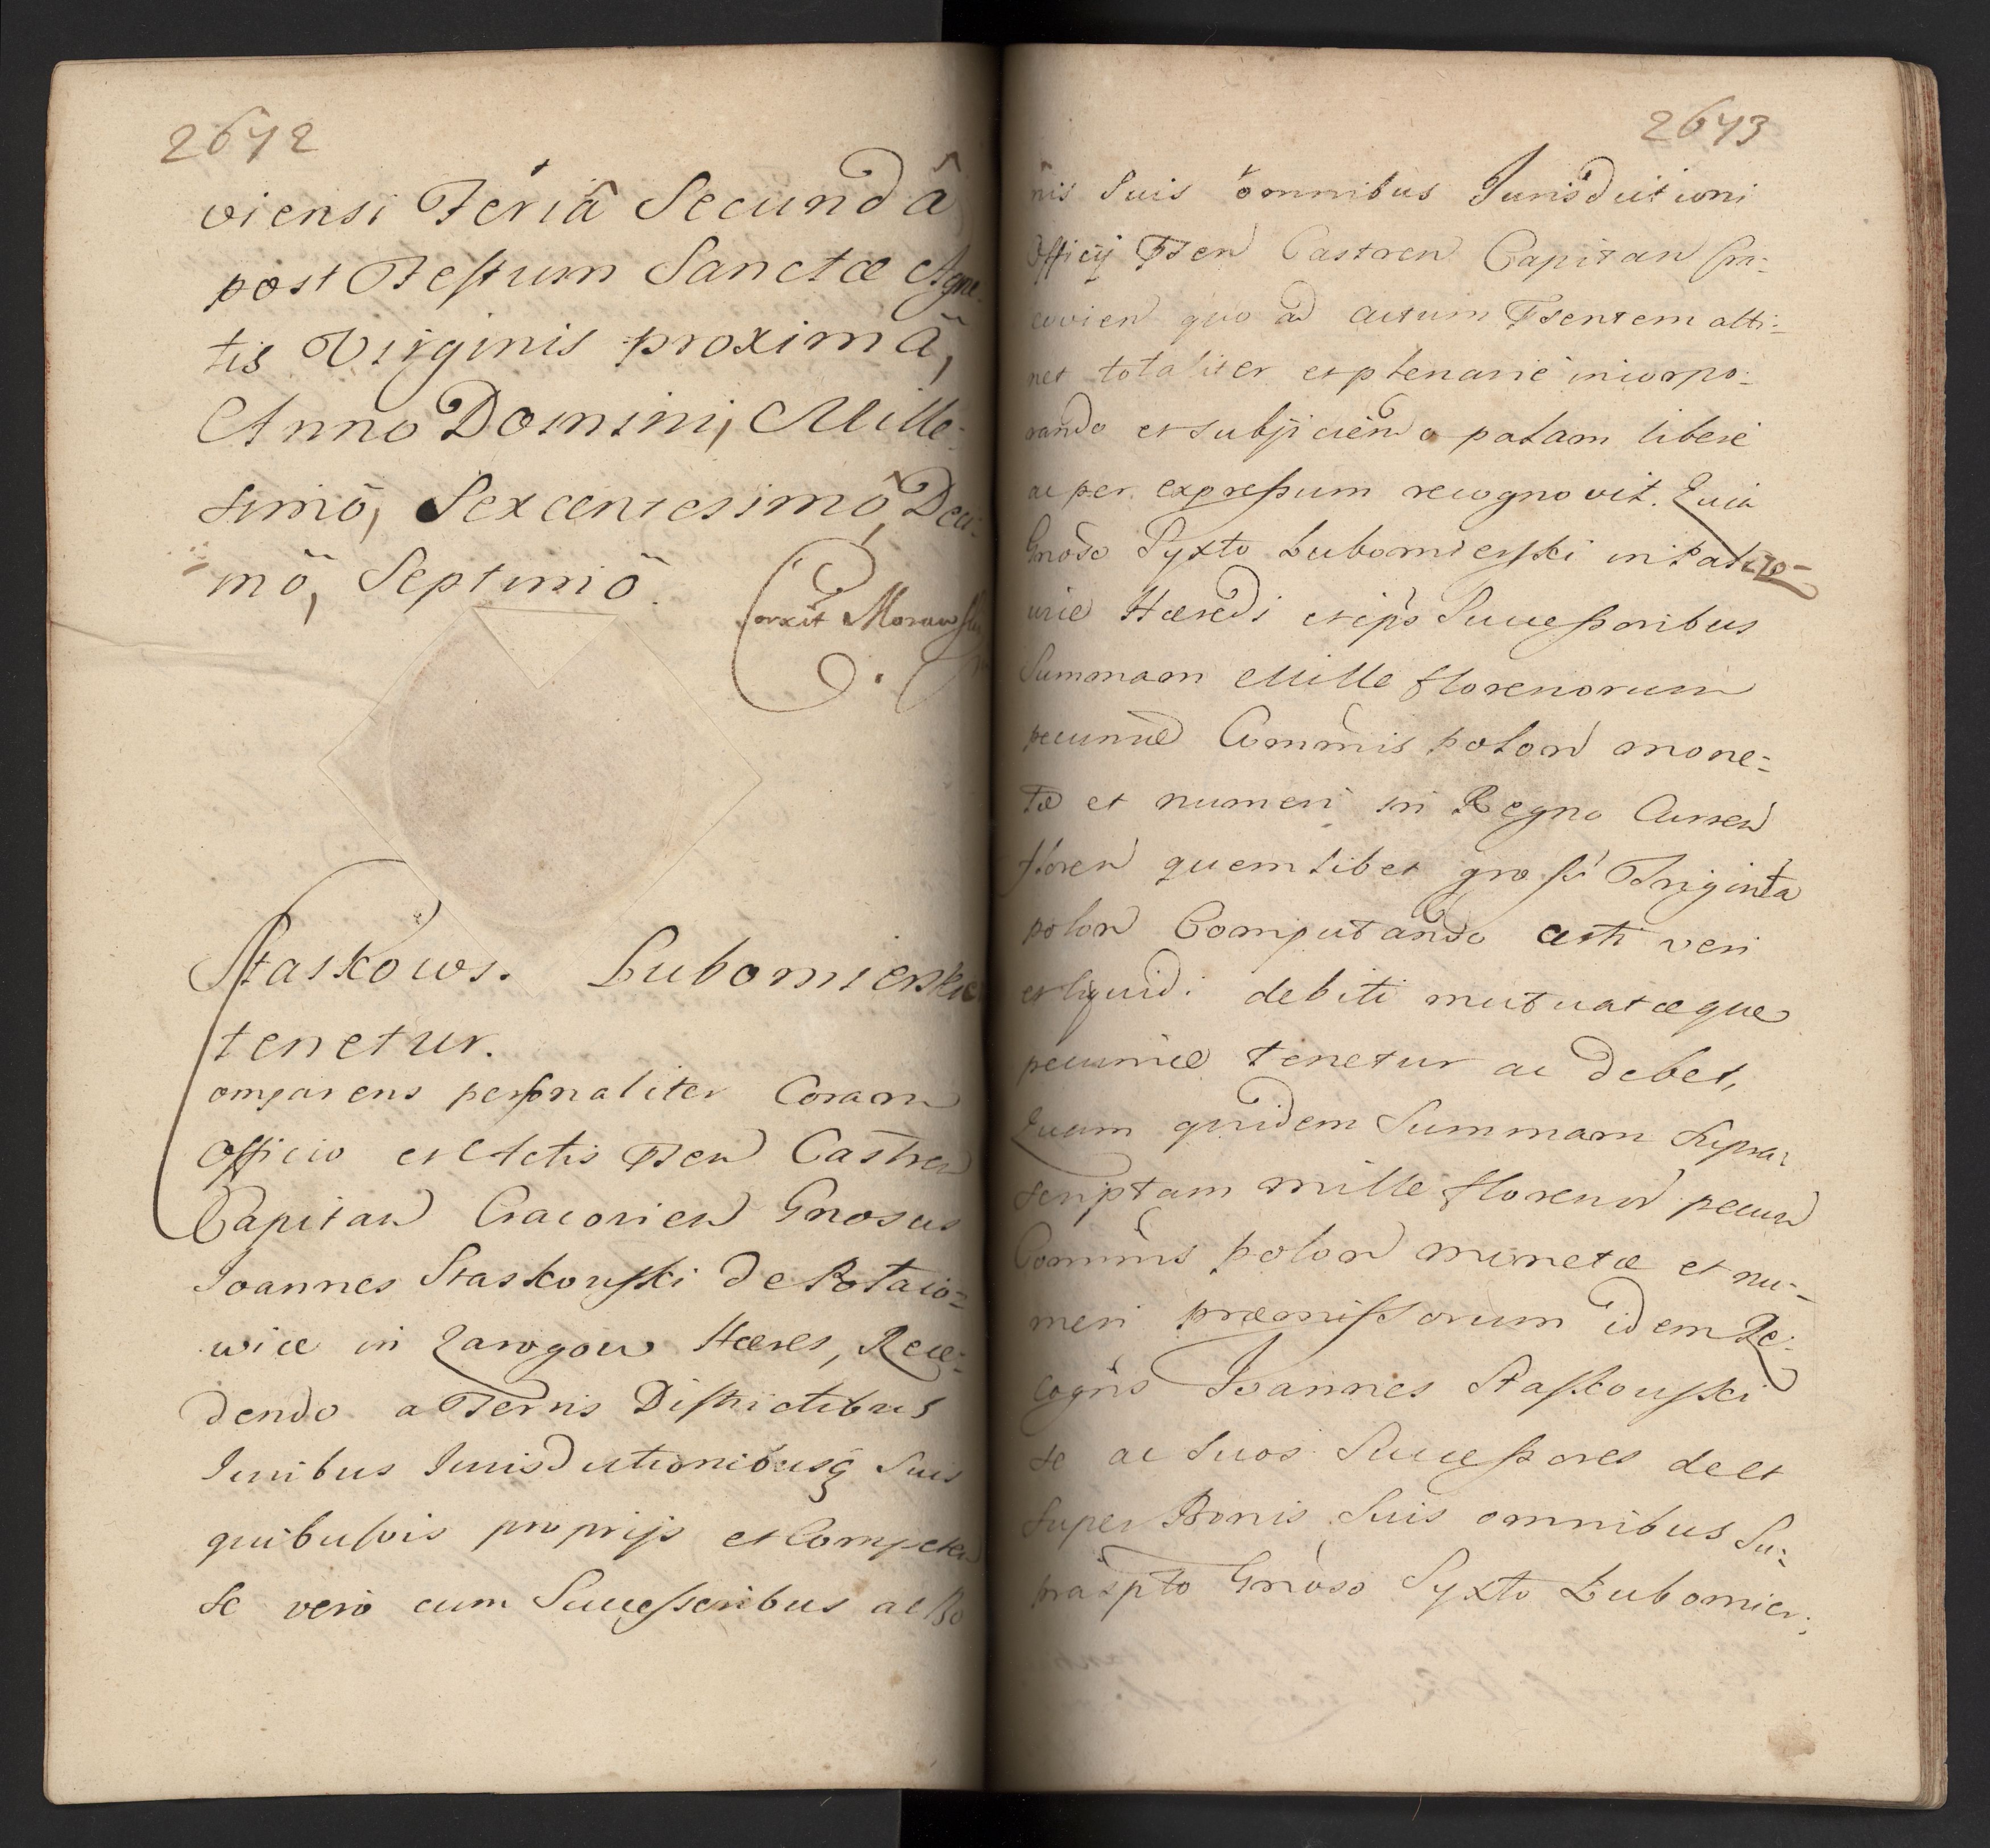 2642
viensi Feriâ Secundâ
post Festum Sanctæ Agne-
tis Virginis proximâ,
Anno Domini, Mille-
simô, Sexcentesimô, Deci-
mô, Septimô.
Corxit Morawski
Staskows. Lubomierskie
tenetur.
Comparens personaliter Coram
Officio et Actis Psen Castren
Capitan Cracovien Gnosus
Joannes Staskowski de Rotaio=
wice in Zarogow Hæres, Rece=
dendo a Terris Districtibus
Juribus Jurisdictionibusq suis
quibusvis proprijs et Competen
Se vero cum Successoribus ac Bo
2643
nis Suis omnibus Jurisdictioni
Officij Psen Castren Capitan Cra=
covien quo ad actum Psentem atti=
net totaliter et plenarie incorpo=
rando et subjiciendo palam libere
ac per expressum recognovit. Quia
Gnoso Syxto Lubomierski in
Hæredi et ips Successoribus
Summam Mille florenorum
pecuniæ Commnis polon mone=
tæ et numeri in Regno Curren
floren quemlibet gross Triginta
polon Computando veri
et liquidi debiti mutuatæque
pecuniæ tenetur ac debet,
Quam quidem Summam Supra=
scriptam mille florenor pecun
Commnis polon monetæ et nu=
meri præmissorum idem Re=
cogns Joannes Staskowski
se ac suos Successores de et
super Bonis Suis omnibus Su=
praspto Gnoso Syxto Lubomier=